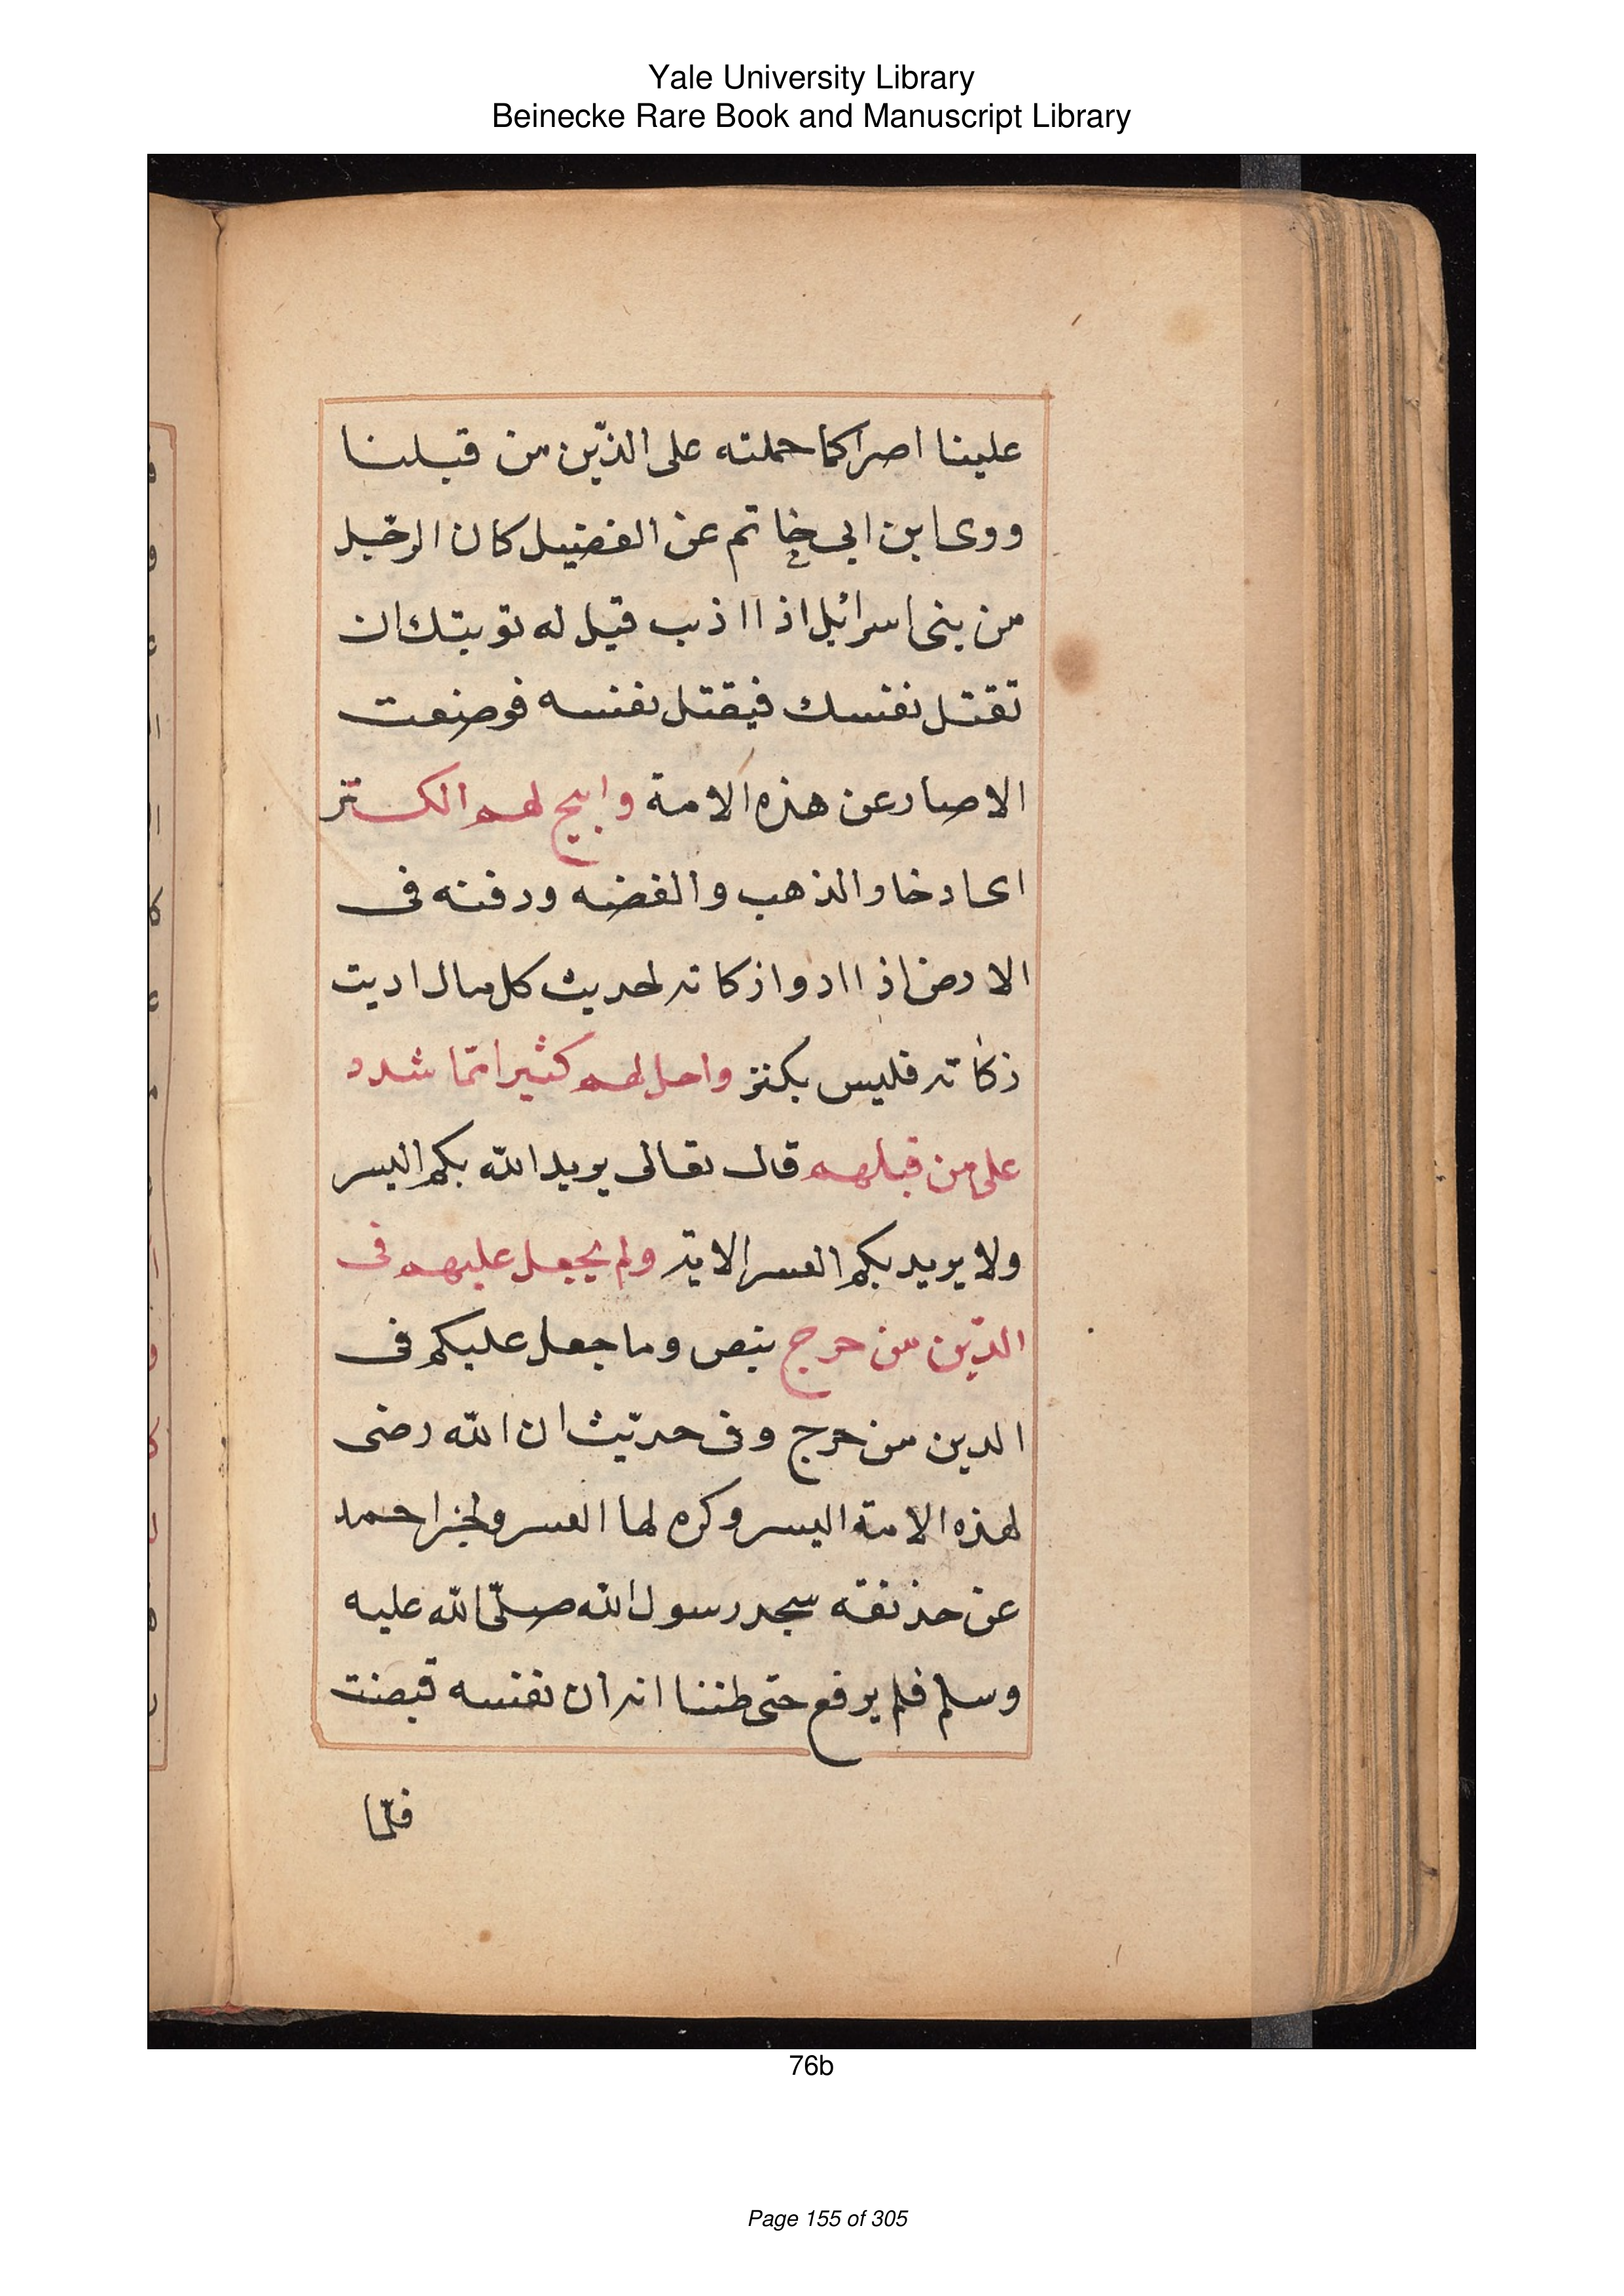 Yale University Library
Beinecke Rare Book and Manuscript Library
علينا اصرا كما حملته على الذّين من قبلنا
ووى ابن ابى خاتم عن الفضيل كان الرخّبل
من بنى اسرائيل اذا اذب قيل له توبتك ان
تقتل نفسك فيقتل نفسه فوضعت
الاصار عن هذه الامة وابيح لهم الكستز
اى ادخار الذهب والفضه ودفنه فى
الارض اذا ادوا زكاته لحديث كل مال اديت
زكاته فليس بكنز واحل لهم كثيرا ممّا شدد
على من قبلهم قال تعالى يريد الله بكم اليسر
ولا يريد بكم العسر الاية ولم يجعل عليهم فى
الدّين من حرج بنص وما جعل عليكم فى
الدين من حرج وفى حديّث ان الله رضى
لهذه الامة اليسر وكره لها العسر ولخبر احمد
عن حذيفه سجد رسول الله صلّى الله عليه
وسلم فلم يرفع حتى ظننا انه ان نفسه قبضت
فلمّا
76b
Page 155 of 305